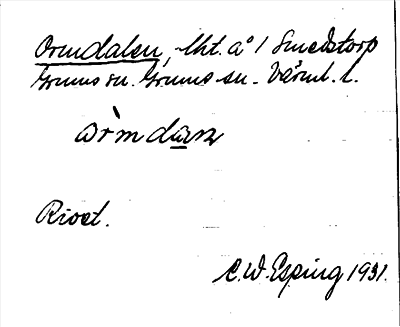 Ormdalen, lht. å 1 Smedstorp
Grums sn. Grums hd. Värml. l.
òrmdan
Rivet.
C.W. Esping 1931.